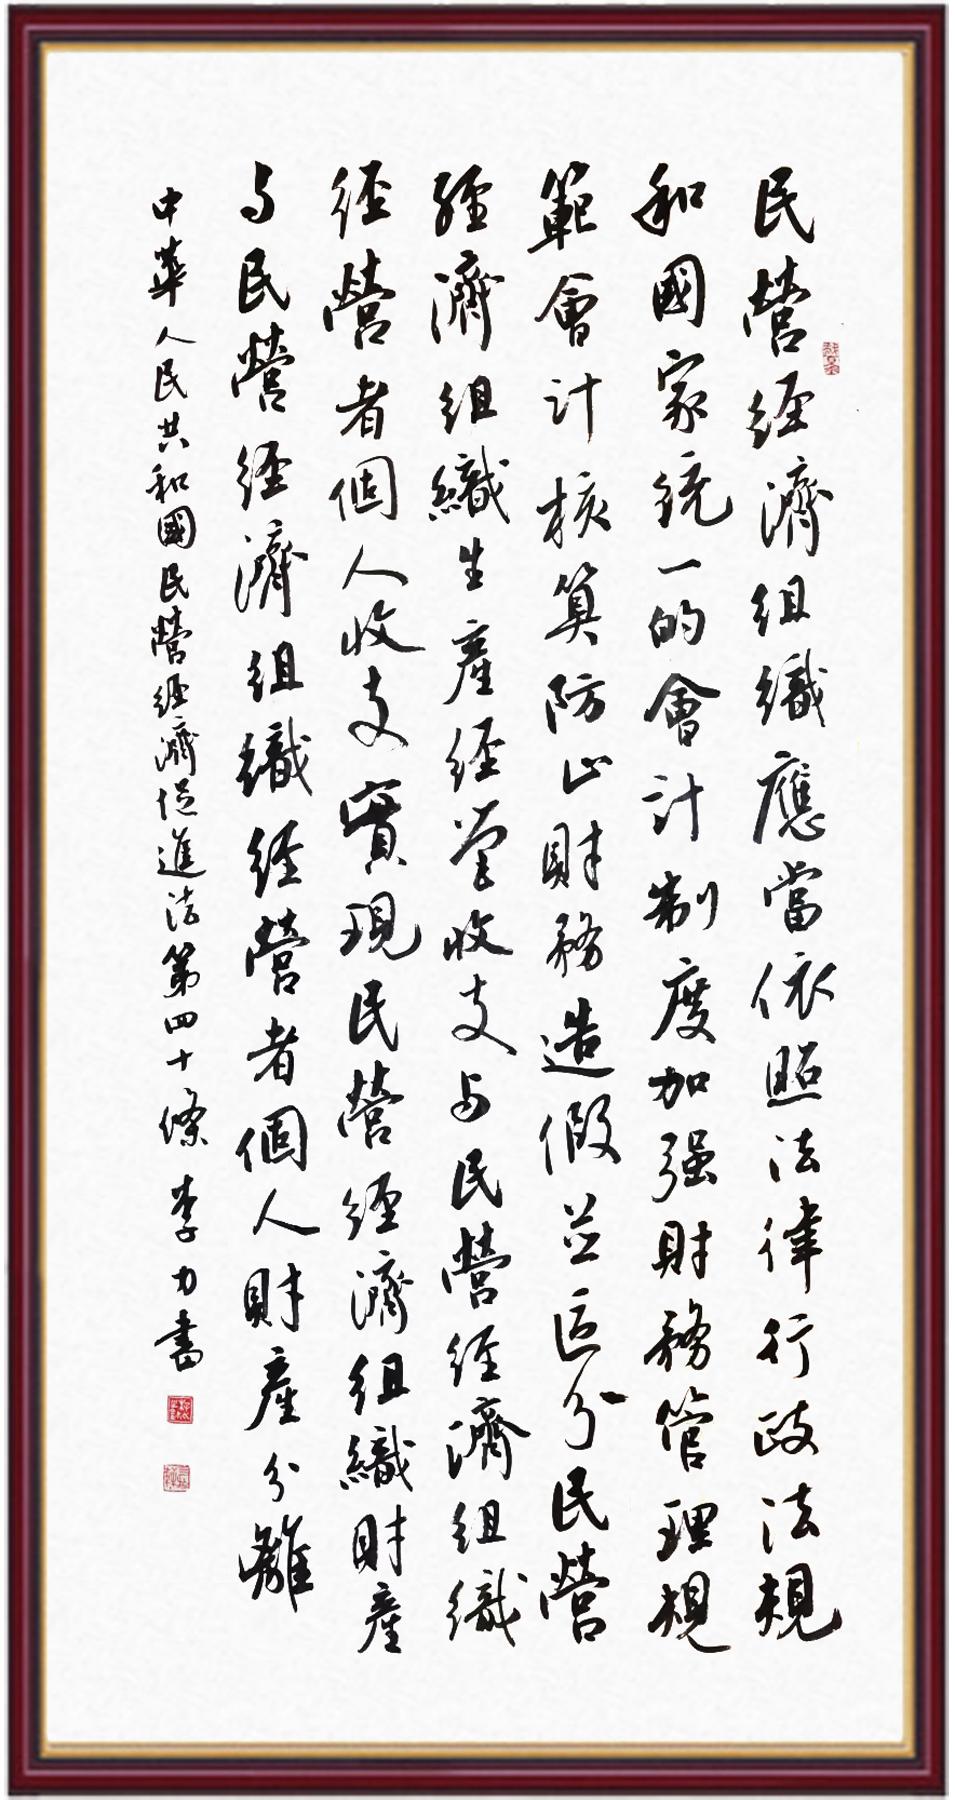 民營經濟組織應當依照法律行政法規
和國家統一的會計制度加强財務管理規
範會計核算防止財務造假并區分民營
經濟組織生產經營收支與民營經濟組織
經營者個人收支實現民營經濟組織財產
與民營經濟組織經營者個人財產分離
中華人民共和國民營經濟促進法第四十條 李力書